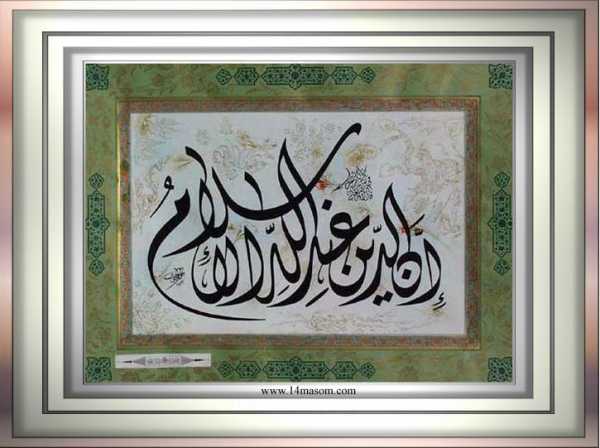 إنَّ الدِّين عِندَ اللهِ الإسلامُ
www.14masom.com